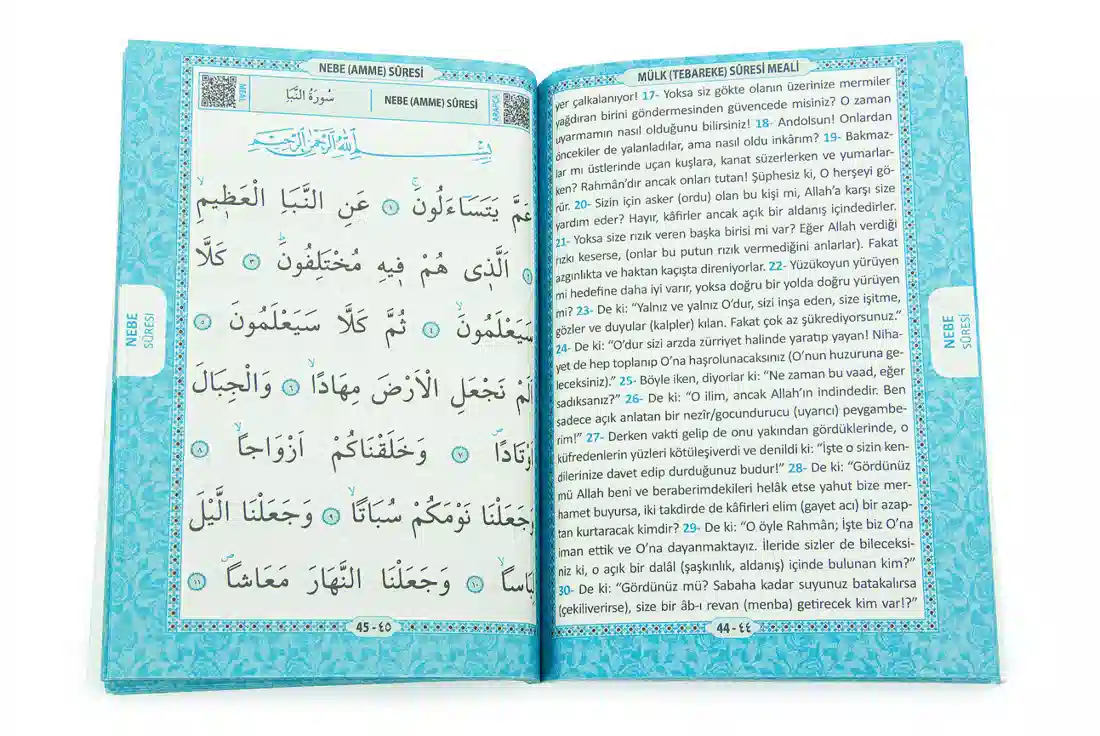 MÜLK (TEBAREKE) SÛRESİ MEALİ
yer çalkalanıyor! 17- Yoksa siz gökte olanın üzerinize mermiler
yağdıran birini göndermesinden güvencede misiniz? O zaman
uyarmamın nasıl olduğunu bilirsiniz! 18- Andolsun! Onlardan
öncekiler de yalanladılar, ama nasıl oldu inkârım? 19- Bakmaz-
lar mı üstlerinde uçan kuşlara, kanat süzerlerken ve yumarlar-
ken? Rahmân’dır ancak onları tutan! Şüphesiz ki, O herşeyi gö-
rür. 20- Sizin için asker (ordu) olan bu kişi mi, Allah’a karşı size
yardım eder? Hayır, kâfirler ancak açık bir aldanış içindedirler.
21- Yoksa size rızık veren başka birisi mi var? Eğer Allah verdiği
rızkı keserse, (onlar bu putun rızık vermediğini anlarlar). Fakat
azgınlıkta ve haktan kaçışta direniyorlar. 22- Yüzükoyun yürüyen
mi hedefine daha iyi varır, yoksa doğru bir yolda doğru yürüyen
mi? 23- De ki: “Yalnız ve yalnız O’dur, sizi inşa eden, size işitme,
gözler ve duyular (kalpler) kılan. Fakat çok az şükrediyorsunuz.”
24- De ki: “O’dur sizi arzda zürriyet halinde yaratıp yayan! Niha-
yet de hep toplanıp O’na haşrolunacaksınız (O’nun huzuruna ge-
leceksiniz).” 25- Böyle iken, diyorlar ki: “Ne zaman bu vaad, eğer
sadıksanız?” 26- De ki: “O ilim, ancak Allah’ın indindedir. Ben
sadece açık anlatan bir nezîr/gocundurucu (uyarıcı) peygambe-
rim!” 27- Derken vakti gelip de onu yakından gördüklerinde, o
küfredenlerin yüzleri kötüleşiverdi ve denildi ki: “İşte o sizin ken-
dilerinize davet edip durduğunuz budur!” 28- De ki: “Gördünüz
mü Allah beni ve beraberimdekileri helâk etse yahut bize mer-
hamet buyursa, iki takdirde de kâfirleri elim (gayet acı) bir azap-
tan kurtaracak kimdir? 29- De ki: “O öyle Rahmân; İşte biz O’na
iman ettik ve O’na dayanmaktayız. İleride sizler de bileceksi-
niz ki, o açık bir dalâl (şaşkınlık, aldanış) içinde bulunan kim?”
30- De ki: “Gördünüz mü? Sabaha kadar suyunuz batakalırsa
(çekiliverirse), size bir âb-ı revan (menba) getirecek kim var!?”
44 - ٤٤
NEBE
SÛRESİ
NEBE (AMME) SÛRESİ
ARAPÇA
NEBE (AMME) SÛRESİ
سُورَةُ النَّبَأِ
MEAL
بِسْمِ اللهِ الرَّحْمٰنِ الرَّحِيمِ
عَمَّ يَتَسَاءَلُونَۚ ﴿١﴾ عَنِ النَّبَأِ الْعَظِيمِۙ
﴿٢﴾ اَلَّذِى هُمْ فِيهِ مُخْتَلِفُونَۜ ﴿٣﴾ كَلَّا
سَيَعْلَمُونَۙ ﴿٤﴾ ثُمَّ كَلَّا سَيَعْلَمُونَ ﴿٥﴾
اَلَمْ نَجْعَلِ الْاَرْضَ مِهَادًاۙ ﴿٦﴾ وَالْجِبَالَ
اَوْتَادًاۖ ﴿٧﴾ وَخَلَقْنَاكُمْ اَزْوَاجاًۙ ﴿٨﴾
وَجَعَلْنَا نَوْمَكُمْ سُبَاتًاۙ ﴿٩﴾ وَجَعَلْنَا الَّيْلَ
لِبَاساًۙ ﴿١٠﴾ وَجَعَلْنَا النَّهَارَ مَعَاشاًۖ ﴿١١﴾
45 - ٤٥
NEBE
SÛRESİ